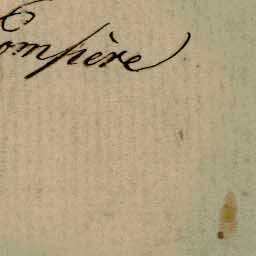 ompère